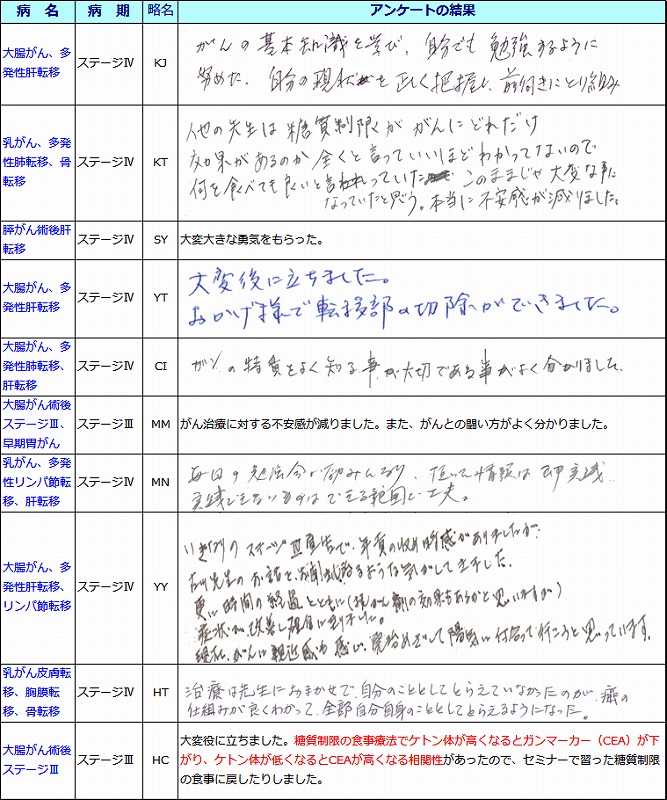 病　名 病　期 略名 アンケートの結果
大腸がん、多発性肝転移 ステージⅣ KJ
がんの基本知識を学び、自分でも勉強するように
努めた。自分の現状を正しく把握し、前向きにとり組み
乳がん、多発性肺転移、骨転移 ステージⅣ KT
他の先生は糖質制限ががんにどれだけ
効果があるのか全くと言っていいほどわかってないので
何を食べても良いと言っていた このままじゃ大変な事に
なっていたと思う。本当に不安感が減りました。
膵がん術後肝転移 ステージⅣ SY 大変大きな勇気をもらった。
大腸がん、多発性肝転移 ステージⅣ YT
大変役に立ちました。
おかげ様で転移部の切除ができました。
大腸がん、多発性肺転移、肝転移 ステージⅣ CI
ガンの特質をよく知る事が大切である事がよく分かりました。
大腸がん術後ステージⅢ、早期胃がん ステージⅢ MM がん治療に対する不安感が減りました。また、がんとの闘い方がよく分かりました。
乳がん、多発性リンパ節転移、肝転移 ステージⅣ MN
毎日の勉強会が励みになり、
実践できないものはできる範囲で工夫。
大腸がん、多発性肝転移、リンパ節転移 ステージⅣ YY
いきなりのステージ 宣告で、年貢の収め時感がありましたが、
先生のお話を
更に時間の経過とともに(抗がん剤の効果もあるかと思いますが)
症状が改善し
現在、がんに親近感を感じ、 陽気に付合って行こうと思っています。
乳がん皮膚転移、胸膜転移、骨転移 ステージⅣ HT
治療は先生におまかせで、自分のこととしてとらえていなかったのが、癌の
仕組みが良くわかって、全部自分自身のこととしてとらえるようになった。
大腸がん術後ステージⅢ ステージⅢ HC
大変役に立ちました。糖質制限の食事療法でケトン体が高くなるとガンマーカー（CEA）が下
がり、ケトン体が低くなるとCEAが高くなる相関性があったので、セミナーで習った糖質制限
の食事に戻したりしました。